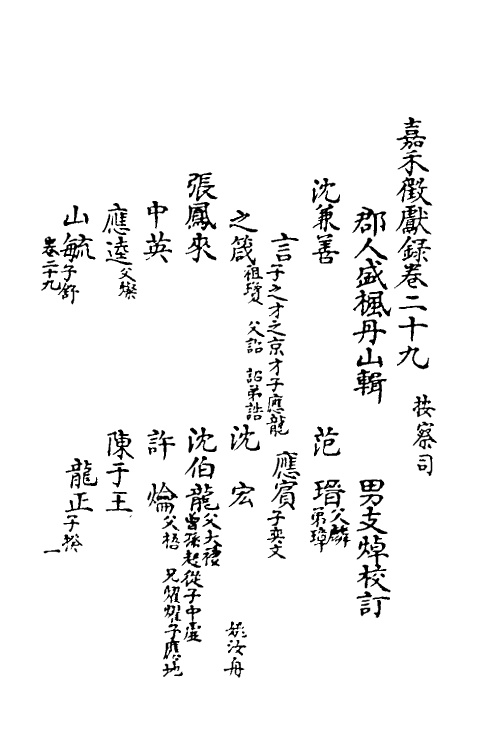 嘉禾徵獻録卷二十九 按察司
郡人盛楓丹山輯 男支焯校訂
沈兼善 范瑨父麟弟璋
言子之才之京才子應龍 應賓子奕文
之箴祖瓊 父詔 詔弟誥 沈宏 姚汝舟
張鳳來 沈伯龍父大䄖曾孫起從子中
中英 許㷍父梧 兄 子應
應逵父燦 陳于王
山毓子舒 龍正子揆
卷二十九 一